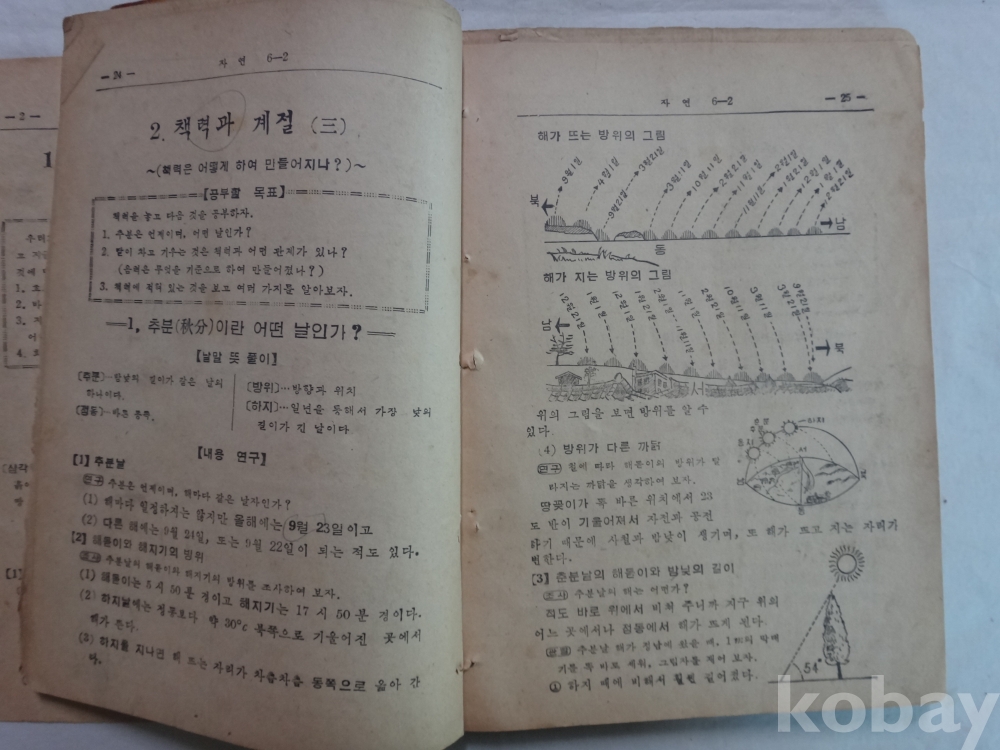 — 24 —
자 연 6—2
2. 책력과 계절 (三)
～(책력은 어떻게 하여 만들어지나?)～
【공부할 목표】
책력을 놓고 다음 것을 공부하자.
1. 추분은 언제이며, 어떤 날인가?
2. 달이 차고 기우는 것은 책력과 어떤 관계가 있나?
(음력은 무엇을 기준으로 하여 만들어졌나?)
3. 책력에 적혀 있는 것을 보고 여러 가지를 알아보자.
1, 추분(秋分)이란 어떤 날인가?
【낱말 뜻 풀이】
(추분)…밤낮의 길이가 같은 날의
하나이다.
(정동)…바른 동쪽.
(방위)…방향과 위치
(하지)…일년을 통해서 가장 낮의
길이가 긴 날이다
【내용 연구】
[1] 추분날
연구 추분은 언제이며, 해마다 같은 날자인가?
(1) 해마다 일정하지는 않지만 올해에는 9월 23일이고
(2) 다른 해에는 9월 24일, 또는 9월 22일이 되는 적도 있다.
[2] 해돋이와 해지기의 방위
조사 추분날의 해돋이와 해지기의 방위를 조사하여 보자.
(1) 해돋이는 5시 50분 경이고 해지기는 17시 50분 경이다.
(2) 하지날에는 정동보다 약 30°c 북쪽으로 기울어진 곳에서
해가 뜬다.
(3) 하지를 지나면 해 뜨는 자리가 차츰차츰 동쪽으로 옮아 간
다.
— 2 —
1
1.
2.
3.
4.
[1]
자 연 6—2
— 25 —
해가 뜨는 방위의 그림
북
9월1일
4월1일
9월21일
3월21일
3월11일
10월11일
2월21일
11월1일
11월11일
2월1일
12월1일
1월1일
남
동
해가 지는 방위의 그림
남
12월21일
1월1일
1월21일
11월11일
2월21일
10월11일
3월11일
3월21일
9월21일
북
서
위의 그림을 보면 방위를 알 수
있다.
(4) 방위가 다른 까닭
연구 철에 따라 해돋이의 방위가 달
라지는 까닭을 생각하여 보자.
동지
춘분
추분
하지
서
동
땅꽂이가 똑 바른 위치에서 23
도 반이 기울어져서 자전과 공전
하기 때문에 사철과 밤낮이 생기며, 또 해가 뜨고 지는 자리가
변한다.
[3] 춘분날의 해돋이와 밤낮의 길이
조사 추분날의 해는 어떤가?
적도 바로 위에서 비쳐 주니까 지구 위의
어느 곳에서나 정동에서 해가 뜨게 된다.
실험 추분날 해가 정남에 왔을 때, 1m의 막대
기를 똑 바로 세워, 그림자를 재어 보자.
① 하지 때에 비해서 훨씬 길어졌다.
54°
kobay